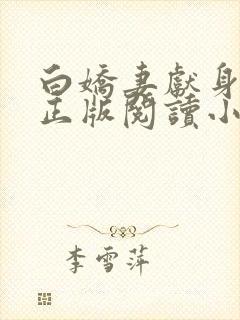 白嬌妻獻身
正版閱讀小
李雪萍